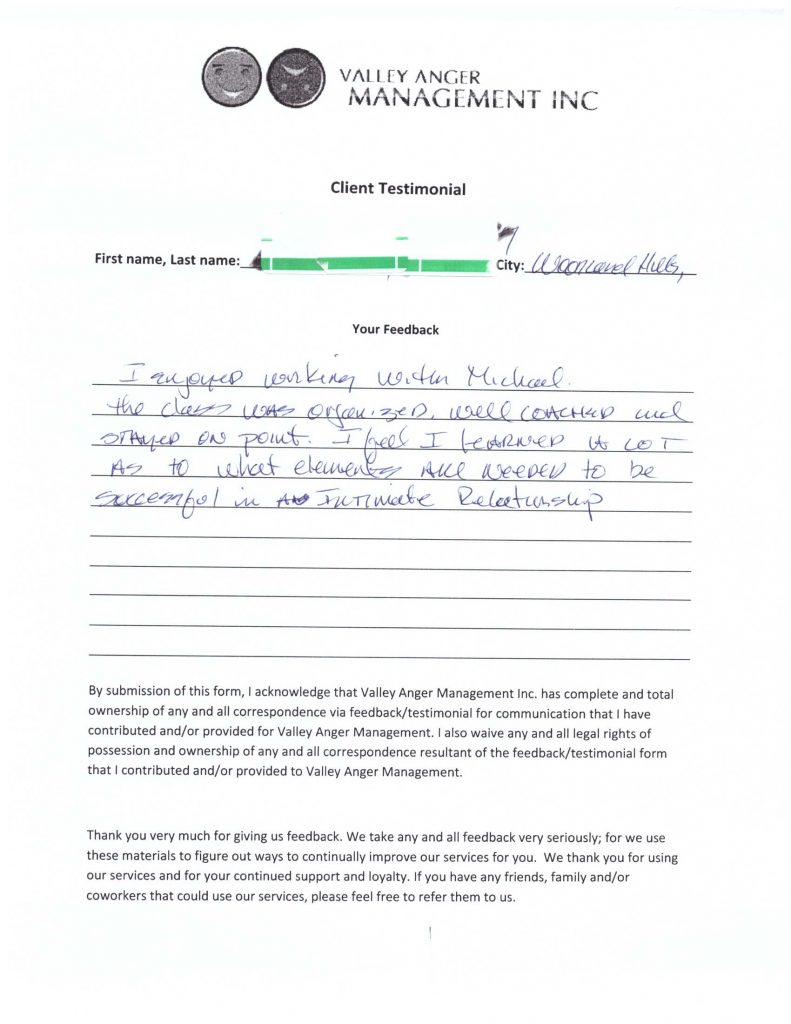 VALLEY ANGER
MANAGEMENT INC
Client Testimonial
First name, Last name: City: Woodland Hills,
Your Feedback
I enjoyed working with Michael.
the class was organized, well coached and
stayed on point. I feel I learned a lot
as to what elements are needed to be
successful in Intimate Relationship
By submission of this form, I acknowledge that Valley Anger Management Inc. has complete and total
ownership of any and all correspondence via feedback/testimonial for communication that I have
contributed and/or provided for Valley Anger Management. I also waive any and all legal rights of
possession and ownership of any and all correspondence resultant of the feedback/testimonial form
that I contributed and/or provided to Valley Anger Management.
Thank you very much for giving us feedback. We take any and all feedback very seriously; for we use
these materials to figure out ways to continually improve our services for you. We thank you for using
our services and for your continued support and loyalty. If you have any friends, family and/or
coworkers that could use our services, please feel free to refer them to us.